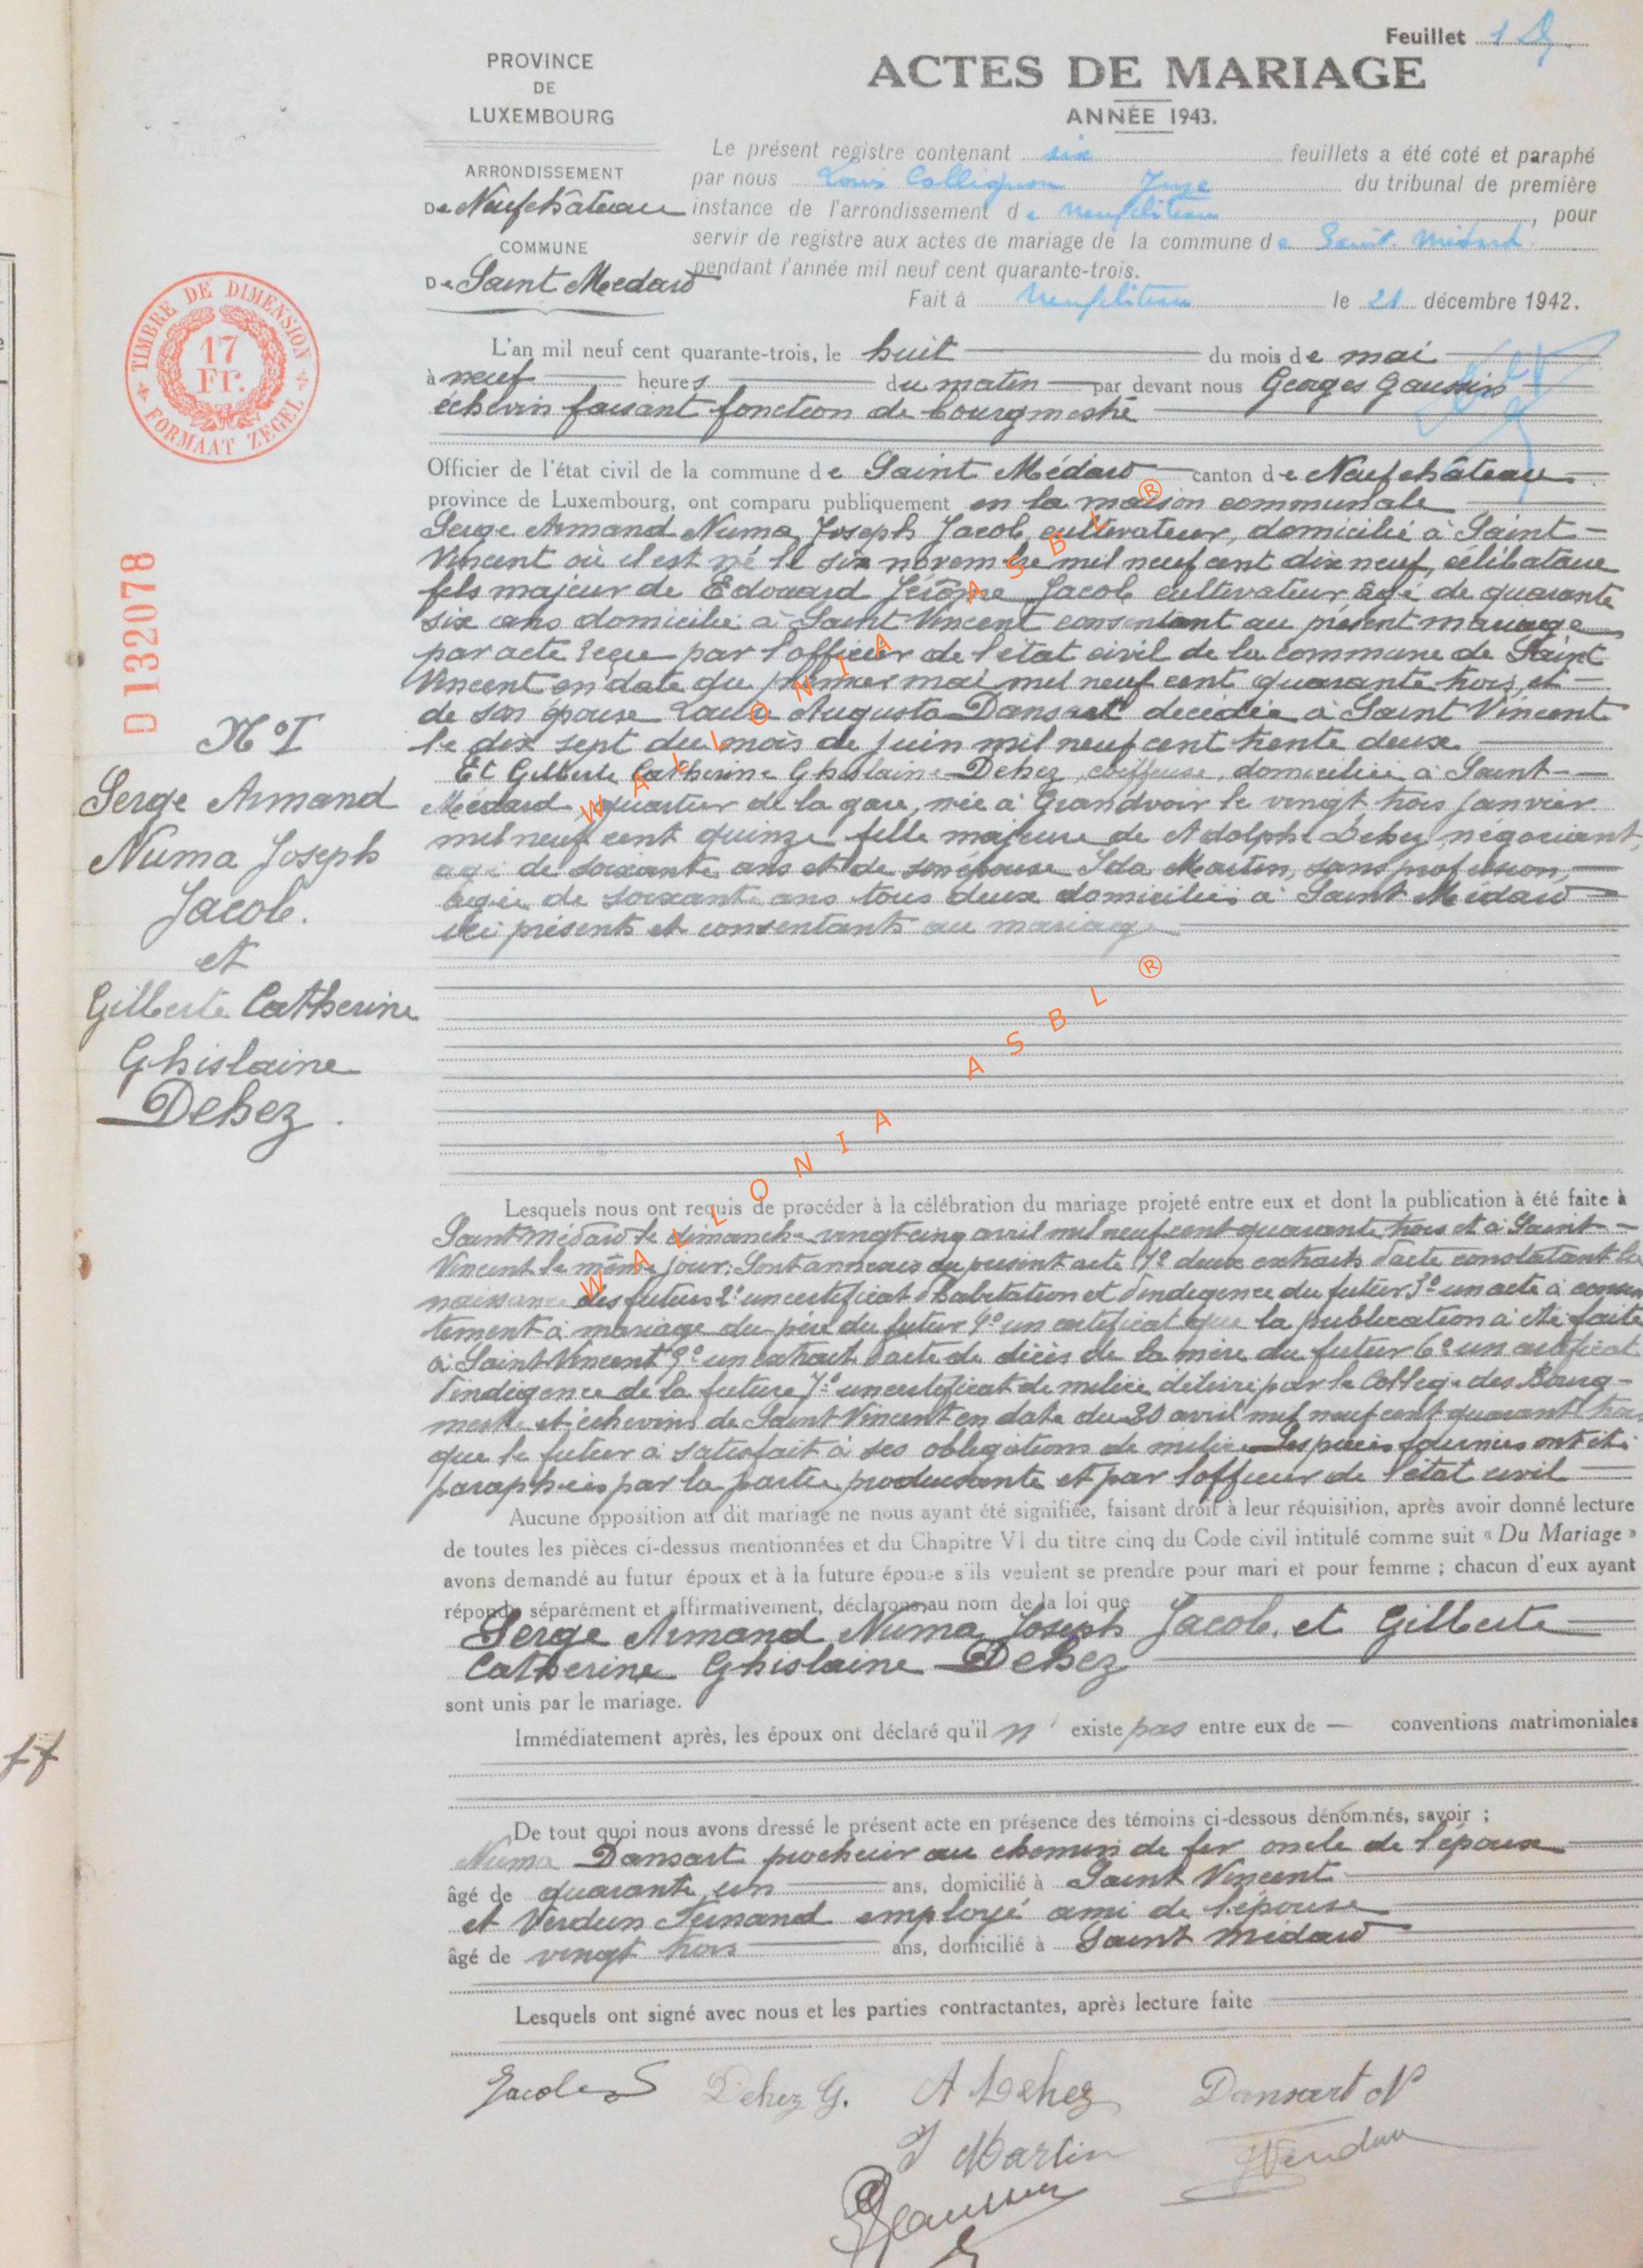 Feuillet 1
PROVINCE
DE
LUXEMBOURG
ARRONDISSEMENT
De Neufchâteau
COMMUNE
De Saint Médard
ACTES DE MARIAGE
ANNÉE 1943.
Le présent registre contenant six feuillets a été coté et paraphé
par nous Louis Collignon Juge du tribunal de première
instance de l'arrondissement de Neufchâteau, pour
servir de registre aux actes de mariage de la commune de Saint-Médard
pendant l'année mil neuf cent quarante-trois.
Fait à Neufchâteau le 21 décembre 1942.
TIMBRE DE DIMENSION
17
Fr.
FORMAAT ZEGEL
D 132078
N° I
Serge Armand
Numa Joseph
Jacob.
et
Gilberte Catherine
Ghislaine
Dehez.
L'an mil neuf cent quarante-trois, le huit du mois de mai
à neuf heures du matin par devant nous Georges Gaussin
échevin faisant fonction de bourgmestre
Officier de l'état civil de la commune de Saint Médard canton de Neufchâteau
province de Luxembourg, ont comparu publiquement en la maison communale
Serge Armand Numa Joseph Jacob, cultivateur, domicilié à Saint-
Vincent où il est né le six novembre mil neuf cent dix neuf, célibataire
fils majeur de Edouard Jérôme Jacob cultivateur âgé de quarante
six ans domicilié à Saint Vincent consentant au présent mariage
par acte reçu par l'officier de l'état civil de la commune de Saint
Vincent en date du premier mai mil neuf cent quarante trois, et
de son épouse Laure Augusta Dansart décédée à Saint Vincent
le dix sept du mois de juin mil neuf cent trente deux
Et Gilberte Catherine Ghislaine Dehez, coiffeuse, domiciliée à Saint-
Médard, quartier de la gare, née à Grandvoir le vingt trois janvier
mil neuf cent quinze fille majeure de Adolphe Dehez négociant,
âgé de soixante ans et de son épouse Ida Martin, sans profession,
âgée de soixante ans tous deux domiciliés à Saint Médard
ici présents et consentants au mariage
Lesquels nous ont requis de procéder à la célébration du mariage projeté entre eux et dont la publication à été faite à
Saint Médard le dimanche vingt-cinq avril mil neuf cent quarante trois et à Saint-
Vincent le même jour. Sont annexés au présent acte 1° deux extraits d'acte constatant la
naissance des futurs 2° un certificat d'habitation et d'indigence du futur 3° un acte de consen
tement à mariage du père du futur 4° un certificat que la publication à été faite
à Saint Vincent 5° un extrait d'acte de décès de la mère du futur 6° un certificat
d'indigence de la future 7° un certificat de milice délivré par le Collège des Bourg-
mestre et échevins de Saint Vincent en date du 30 avril mil neuf cent quarante trois
que le futur à satisfait à ses obligations de milice. Les pièces fournies ont été
paraphées par la partie produisante et par l'officier de l'état civil
Aucune opposition au dit mariage ne nous ayant été signifiée, faisant droit à leur réquisition, après avoir donné lecture
de toutes les pièces ci-dessus mentionnées et du Chapitre VI du titre cinq du Code civil intitulé comme suit « Du Mariage »
avons demandé au futur époux et à la future épouse s'ils veulent se prendre pour mari et pour femme ; chacun d'eux ayant
répondu séparément et affirmativement, déclarons au nom de la loi que
Serge Armand Numa Joseph Jacob. et Gilberte
Catherine Ghislaine Dehez
sont unis par le mariage.
Immédiatement après, les époux ont déclaré qu'il n' existe pas entre eux de — conventions matrimoniales
De tout quoi nous avons dressé le présent acte en présence des témoins ci-dessous dénommés, savoir ;
Numa Dansart piocheur au chemin de fer oncle de l'époux
âgé de quarante un ans, domicilié à Saint Vincent
et Verdun Fernand employé ami de l'épouse
âgé de vingt trois ans, domicilié à Saint Médard
Lesquels ont signé avec nous et les parties contractantes, après lecture faite
Jacob S Dehez G. A Dehez Dansart N
I Martin Verdun
Gaussin
ff
WALLONIA ASBL ®
WALLONIA ASBL ®